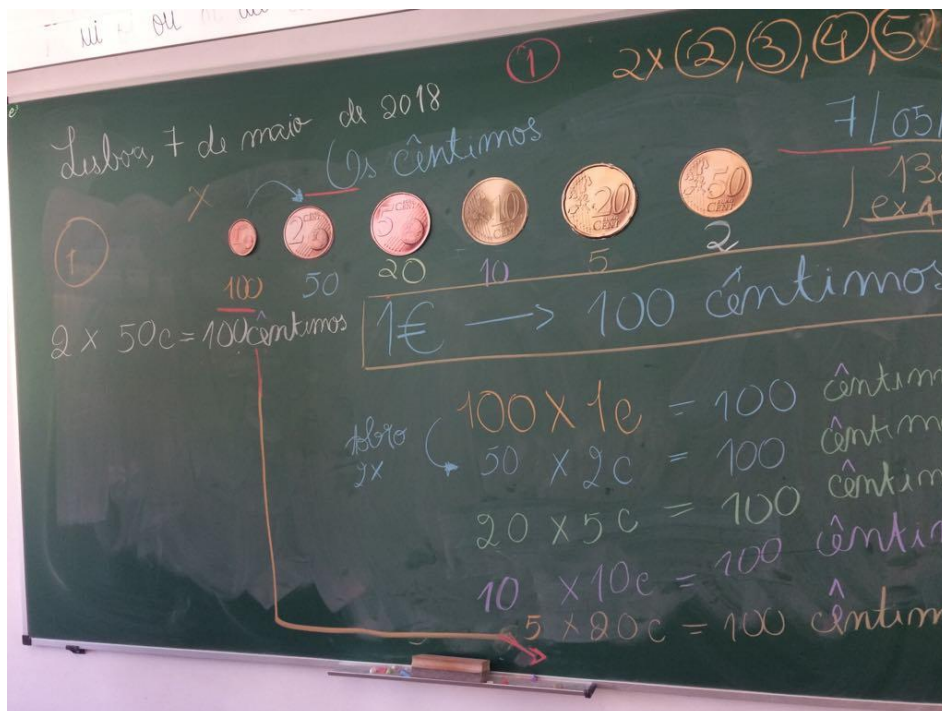 ui ou
1 2x 2, 3, 4, 5
Lisboa, 7 de maio de 2018
7/05/
Os cêntimos
X
1 2 CENT 5 CENT 10 CENT 20 CENT 50 CENT
1
100 50 20 10 5 2
2 x 50c = 100 cêntimos
1€ → 100 cêntimos
100 x 1c = 100 cêntim
2x
50 x 2c = 100 cêntim
20 x 5c = 100 cêntim
10 x 10c = 100 cênti
5 x 20c = 100 cêntim